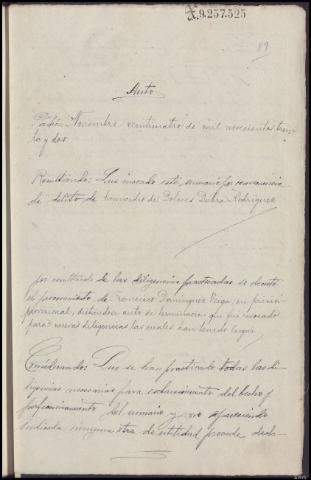 9.257.525
89
Auto
Noviembre veinticuatro de mil novecientos trein-
ta y dos.
Resultando: Que incoado este sumario por consecuencia
de delito de homicidio de Dolores Dubra Rodriguez
por resultado de las diligencias practicadas se decretó
el procesamiento de Francisco Dominguez Veiga, en prisión
provisional, dictandose auto de terminacion que fué revocado
para nuevas diligencias las cuales han tenido lugar.
Considerando: Que se han practicado todas las di-
ligencias necesarias para esclarecimiento del hecho y
perfeccionamiento del sumario, y no apareciendo
indicada ninguna otra de utilidad procede decla-